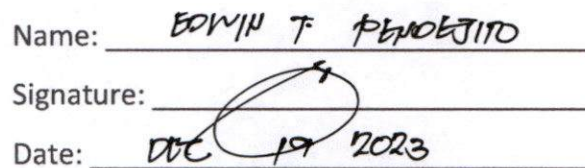 Name: EDWIN T. PENDEJITO
Signature:
Date: DEC 19 2023